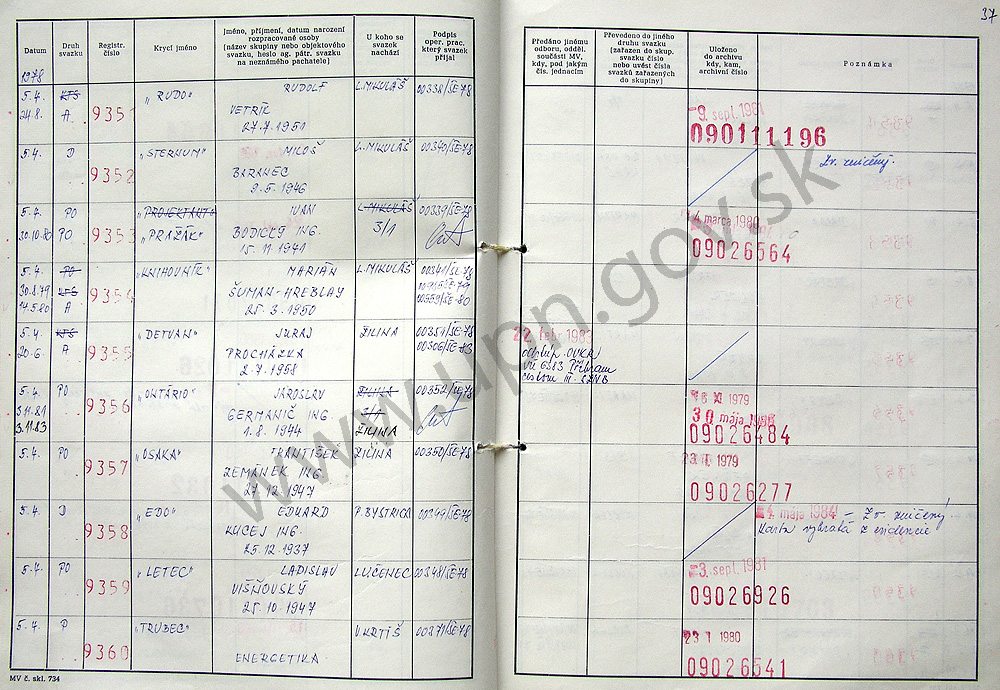 37
Datum
Druh svazku
Registr. číslo
Krycí jméno
Jméno, příjmení, datum narození rozpracované osoby (název skupiny nebo objektového svazku, heslo ag. pátr. svazku na neznámého pachatele)
U koho se svazek nachází
Podpis oper. prac. který svazek přijal
Předáno jinému odboru, odděl. součásti MV, kdy, pod jakým čís. jednacím
Převedeno do jiného druhu svazku (zařazen do skup. svazku číslo nebo uvést čísla svazků zařazených do skupiny)
Uloženo do archivu kdy, kam, archivní číslo
Poznámka
1978
5.4. KTS 9351 „RUDO" RUDOLF L.MIKULÁŠ 00338/ŠE-78
24.8. A VETRÍK
27.7.1951
-9. sept. 1981
090111196
5.4. D 9352 „STERNUM" MILOŠ L.MIKULÁŠ 00340/ŠE-78
BARANEC
9.5.1946
Zv. zničený.
5.4. PO 9353 „PROJEKTANT" IVAN L.MIKULÁŠ 00339/ŠE-78
30.10.80 PO „PRAŽÁK" BODICKÝ ING. 3/1
15.11.1941
14. marca 1980
09026564
5.4. PO 9354 „KNIHOVNÍK" MARIÁN L.MIKULÁŠ 00341/ŠE-78
30.8.79 KTS ŠUMAN-HREBLAY
14.5.80 A 25.3.1950 00559/ŠE-80
5.4. KTS 9355 „DETVAN" JURAJ ŽILINA 00351/ŠE-78
20.6. A PROCHÁZKA 00506/ŠE-83
2.7.1958
22. febr. 1983
odstúp. OVKR
VÚ 6383 Příbram
cestou III. SZNB
5.4. PO 9356 „ONTÁRIO" JAROSLAV ŽILINA
5.11.81 GERMANIČ ING. 3/1
3.11.83 1.8.1944 ŽILINA
16 XI 1979
30 mája
09026484
5.4. PO 9357 „OSAKA" FRANTIŠEK ŽILINA 00350/ŠE-78
ZEMÁNEK ING.
27.12.1947
23 I. 1979
09026277
5.4. D 9358 „EDO" EDUARD P.BYSTRICA 00349/ŠE-78
KUCEJ ING.
25.12.1937
mája 1984 – Zv. zničený
karta vybratá z evidencie
5.4. PO 9359 „LETEC" LADISLAV LUČENEC 00348/ŠE-78
VIŠŇOVSKÝ
25.10.1947
-3. sept. 1981
09026926
5.4. P 9360 „TRUBEC" V.KRTÍŠ 00271/ŠE-78
ENERGETIKA
23 I 1980
09026541
MV č. skl. 734
www.upn.gov.sk